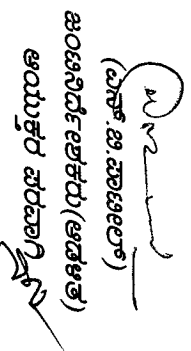 (ಎಸ್.ಬಿ.ಪಾಟೀಲ್)
ಜಂಟಿನಿರ್ದೇಶಕರು(ಆಡಳಿತ)
ಆಯುಕ್ತರ ಪರವಾಗಿ